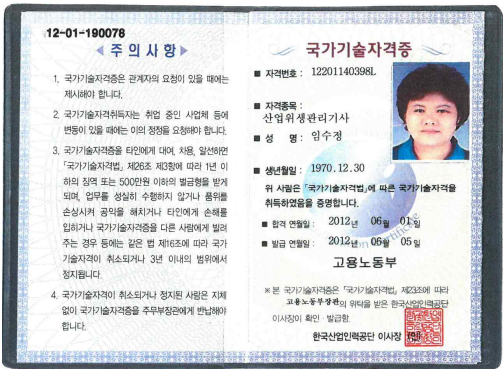 12-01-190078
주 의 사 항
1. 국가기술자격증은 관계자의 요청이 있을 때에는
제시해야 합니다.
2. 국가기술자격취득자는 취업 중인 사업체 등에
변동이 있을 때에는 이의 정정을 요청해야 합니다.
3. 국가기술자격증을 타인에게 대여, 차용, 알선하면
「국가기술자격법」 제26조 제3항에 따라 1년 이
하의 징역 또는 500만원 이하의 벌금형을 받게
되며, 업무를 성실히 수행하지 않거나 품위를
손상시켜 공익을 해치거나 타인에게 손해를
입히거나 국가기술자격증을 다른 사람에게 빌려
주는 경우 등에는 같은 법 제16조에 따라 국가
기술자격이 취소되거나 3년 이내의 범위에서
정지됩니다.
4. 국가기술자격이 취소되거나 정지된 사람은 지체
없이 국가기술자격증을 주무부장관에게 반납해야
합니다.
국가기술자격증
■ 자격번호 : 12201140398L
■ 자격종목 :
산업위생관리기사
■ 성 명 : 임수정
■ 생년월일 : 1970.12.30
위 사람은 「국가기술자격법」에 따른 국가기술자격을
취득하였음을 증명합니다.
■ 합격 연월일 : 2012 년 06 월 01 일
■ 발급 연월일 : 2012 년 06 월 05 일
고용노동부
※ 본 국가기술자격증은 「국가기술자격법」 제23조에 따라
고용노동부장관의 위탁을 받은 한국산업인력공단
이사장이 확인 · 발급함.
한국산업인력공단 이사장